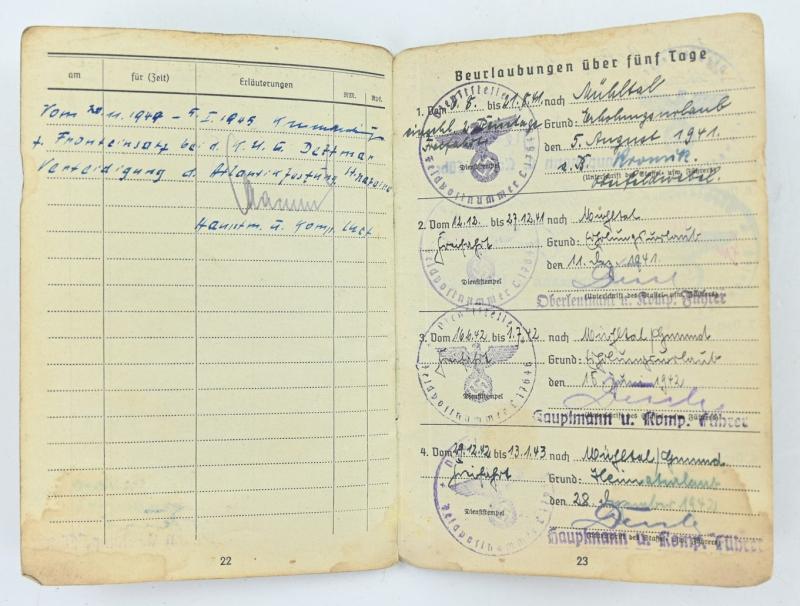 am für (Zeit) Erläuterungen
Vom 20.11.1944 – 5.I.1945
z. Fronteinsatz bei d. Dettmar
Verteidigung d. Atlantikfestung St. Nazaire
Hauptm. u. Komp.
22
Beurlaubungen über fünf Tage
1. Vom 8.8. bis 21.8.41 nach Mühltal
Freifahrt Grund: Erholungsurlaub
den 5. August 1941.
Dienststempel
(Unterschrift des Staffel- usw. Führers)
Dienststelle
Feldpostnummer L 17646
2. Vom 12.12. bis 27.12.41 nach Mühltal
Freifahrt Grund: Erholungsurlaub
den 11. Dez. 1941.
Dienststempel
Oberleutnant u. Komp. Führer
(Unterschrift des Staffel- usw. Führers)
Feldpostnummer L 17646
3. Vom 16.6.42 bis 1.7.42 nach Mühltal/Gmund
Freifahrt Grund: Erholungsurlaub
den 15. Juni 1942
Dienststempel
Hauptmann u. Komp. Führer
Dienststelle
Feldpostnummer L 17646
4. Vom 29.12.42 bis 13.1.43 nach Mühltal/Gmund
Freifahrt Grund: Heimaturlaub
den 28. Dezember 1942
Dienststempel
Hauptmann u. Komp. Führer
Feldpostnummer
23